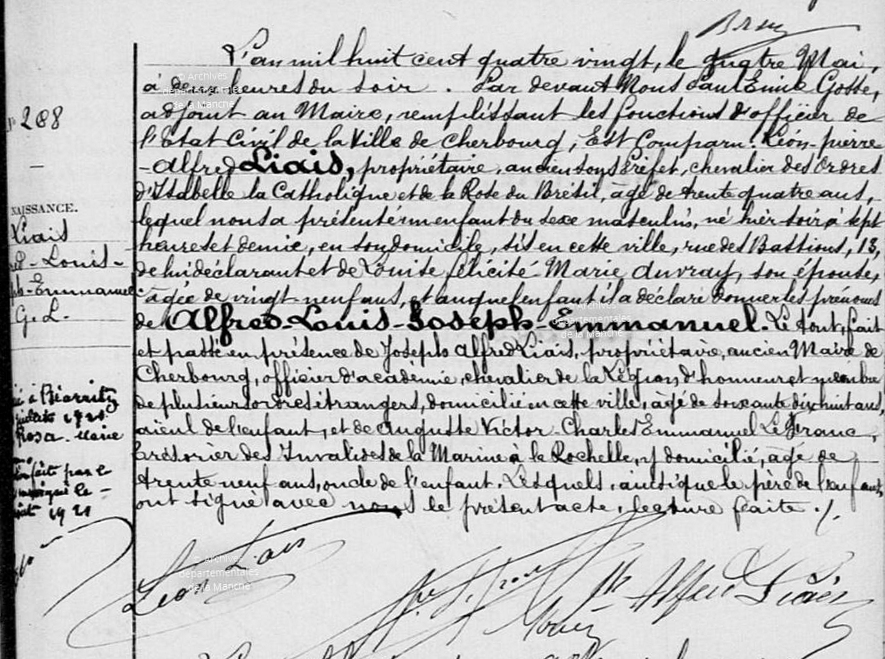 L'an mil huit cent quatre vingt, le quatre Mai,
à deux heures du soir. Par devant Nous Paul Emile Gosse,
adjoint au Maire, remplissant les fonctions d'officier de
l'Etat Civil de la Ville de Cherbourg, Est Comparu: Léon-pierre
-Alfred Liais, propriétaire, ancien sous Préfet, chevalier des Ordres
d'Isabelle la Catholique et de la Rose du Brésil, âgé de trente quatre ans,
lequel nous a présenté un enfant du sexe masculin, né hier soir, à sept
heures et demie, en son domicile, sis en cette ville, rue des Bastions, 13,
de lui déclarant et de Louise félicité Marie auvray, son épouse,
âgée de vingt neuf ans, et auquel enfant il a déclaré donner les prénoms
de Alfred-Louis-Joseph-Emmanuel. Le tout fait
et passé en présence de Joseph Alfred Liais, propriétaire, ancien Maire de
Cherbourg, officier d'académie, chevalier de la Légion d'honneur et membre
de plusieurs ordres étrangers, domicilié en cette ville, âgé de soixante dix huit ans,
aïeul de l'enfant, et de Auguste Victor Charles Emmanuel Le Franc,
trésorier des Invalides de la Marine à la Rochelle, y domicilié, âgé de
trente neuf ans, oncle de l'enfant. Lesquels, ainsi que le père de l'enfant,
ont signé avec nous le présent acte, lecture faite ./.
N° 268
NAISSANCE.
Liais
Louis-
Emmanuel
G. L.
à Biarritz
juillet 1921
Rosa Marie
faite par le
le
1921
Léon Liais
Alfred Liais
© Archives
départementales
de la Manche
© Archives
départementales
de la Manche
© Archives
départementales
de la Manche